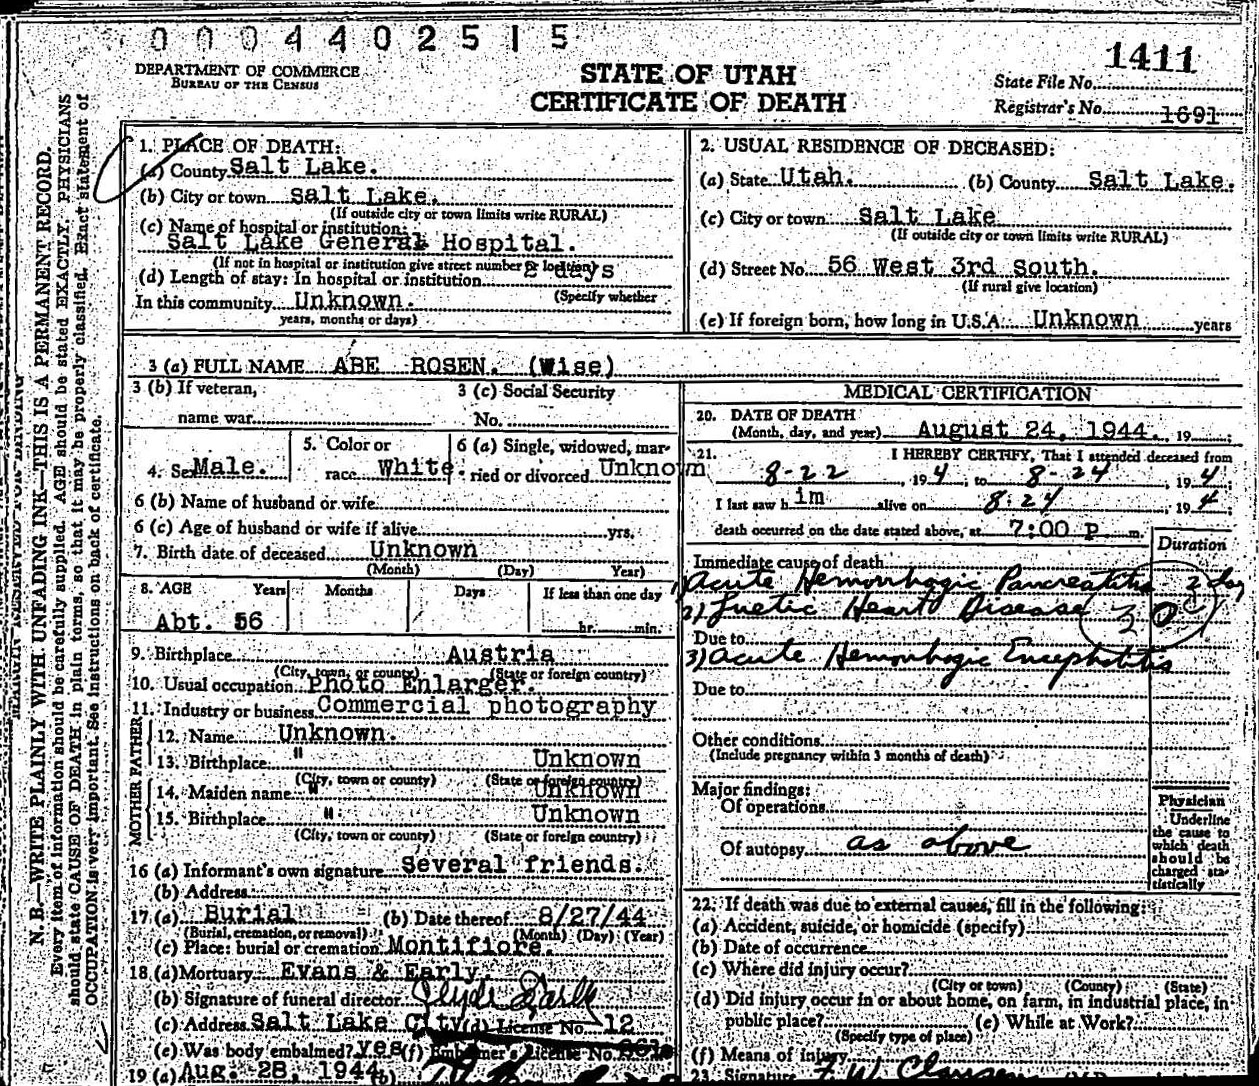 0 0 0 4 4 0 2 5 1 5
1411
DEPARTMENT OF COMMERCE
BUREAU OF THE CENSUS
STATE OF UTAH
CERTIFICATE OF DEATH
State File No.
Registrar's No. 1691
N. B.—WRITE PLAINLY WITH UNFADING INK—THIS IS A PERMANENT RECORD.
Every item of information should be carefully supplied. AGE should be stated EXACTLY. PHYSICIANS
should state CAUSE OF DEATH in plain terms, so that it may be properly classified. Exact statement of
OCCUPATION is very important. See instructions on back of certificate.
1. PLACE OF DEATH:
(a) County Salt Lake.
(b) City or town Salt Lake.
(If outside city or town limits write RURAL)
(c) Name of hospital or institution:
Salt Lake General Hospital.
(If not in hospital or institution give street number or location)
(d) Length of stay: In hospital or institution 2 days
(Specify whether
In this community Unknown.
years, months or days)
2. USUAL RESIDENCE OF DECEASED:
(a) State Utah. (b) County Salt Lake.
(c) City or town Salt Lake
(If outside city or town limits write RURAL)
(d) Street No. 56 West 3rd South.
(If rural give location)
(e) If foreign born, how long in U.S.A. Unknown years
3 (a) FULL NAME ABE ROSEN. (Wise)
3 (b) If veteran,
name war
3 (c) Social Security
No.
4. Sex Male.
5. Color or
race White
6 (a) Single, widowed, mar-
ried or divorced Unknown
6 (b) Name of husband or wife
6 (c) Age of husband or wife if alive yrs.
7. Birth date of deceased Unknown
(Month) (Day) Year)
8. AGE Years Months Days If less than one day
Abt. 56 hr. min.
9. Birthplace Austria
(City, town, or county) (State or foreign country)
10. Usual occupation Photo Enlarger.
11. Industry or business Commercial photography
FATHER
12. Name Unknown.
13. Birthplace " Unknown
(City, town or county) (State or foreign country)
MOTHER
14. Maiden name " Unknown
15. Birthplace " Unknown
(City, town or county) (State or foreign country)
16 (a) Informant's own signature Several friends.
(b) Address
17 (a) Burial (b) Date thereof 8/27/44
(Burial, cremation, or removal) (Month) (Day) (Year)
(c) Place: burial or cremation Montifiore.
18 (a) Mortuary Evans & Early.
(b) Signature of funeral director Clyde Early
(c) Address Salt Lake City (d) License No. 12
(e) Was body embalmed? yes (f) Embalmer's License No.
19 (a) Aug. 28, 1944 (b)
MEDICAL CERTIFICATION
20. DATE OF DEATH
(Month, day, and year) August 24, 1944. 19
21. I HEREBY CERTIFY, That I attended deceased from
8-22, 194 4, to 8-24, 194 4
I last saw him alive on 8-24, 194 4
death occurred on the date stated above, at 7:00 P. m.
Duration
Immediate cause of death
1) Acute Hemorrhagic Pancreatitis 2 day
2) Luetic Heart Disease 30
Due to
3) Acute Hemorrhagic Encephalitis
Due to
Other conditions
(Include pregnancy within 3 months of death)
Major findings:
Of operations
Of autopsy as above
Physician
Underline
the cause to
which death
should be
charged sta-
tistically
22. If death was due to external causes, fill in the following:
(a) Accident, suicide, or homicide (specify)
(b) Date of occurrence
(c) Where did injury occur?
(City or town) (County) (State)
(d) Did injury occur in or about home, on farm, in industrial place, in
public place? (e) While at Work?
(Specify type of place)
(f) Means of injury
23. Signature